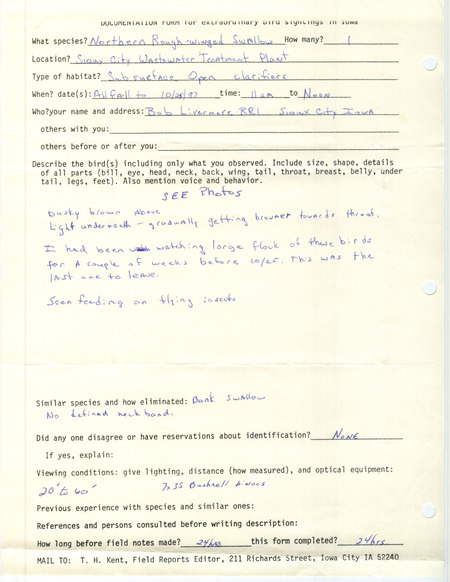 DOCUMENTATION FORM for extraordinary bird sightings in Iowa
What species? Northern Rough-winged Swallow How many? 1
Location? Sioux City Wastewater Treatment Plant
Type of habitat? Subsurface Open clarifiers
When? date(s): All fall to 10/25/97 time: 11am to Noon
Who?your name and address: Bob Livermore RR1 Sioux City Iowa
others with you:
others before or after you:
Describe the bird(s) including only what you observed. Include size, shape, details
of all parts (bill, eye, head, neck, back, wing, tail, throat, breast, belly, under
tail, legs, feet). Also mention voice and behavior.
SEE Photos
Dusky brown above
Light underneath - gradually getting browner towards throat.
I had been watching large flock of these birds
for a couple of weeks before 10/25. This was the
last one to leave.
Seen feeding on flying insects
Similar species and how eliminated: Bank Swallow
No defined neck band.
Did any one disagree or have reservations about identification? None
If yes, explain:
Viewing conditions: give lighting, distance (how measured), and optical equipment:
20' to 60' 7x35 Bushnell binocs
Previous experience with species and similar ones:
References and persons consulted before writing description:
How long before field notes made? 24hrs this form completed? 24hrs
MAIL TO: T. H. Kent, Field Reports Editor, 211 Richards Street, Iowa City IA 52240